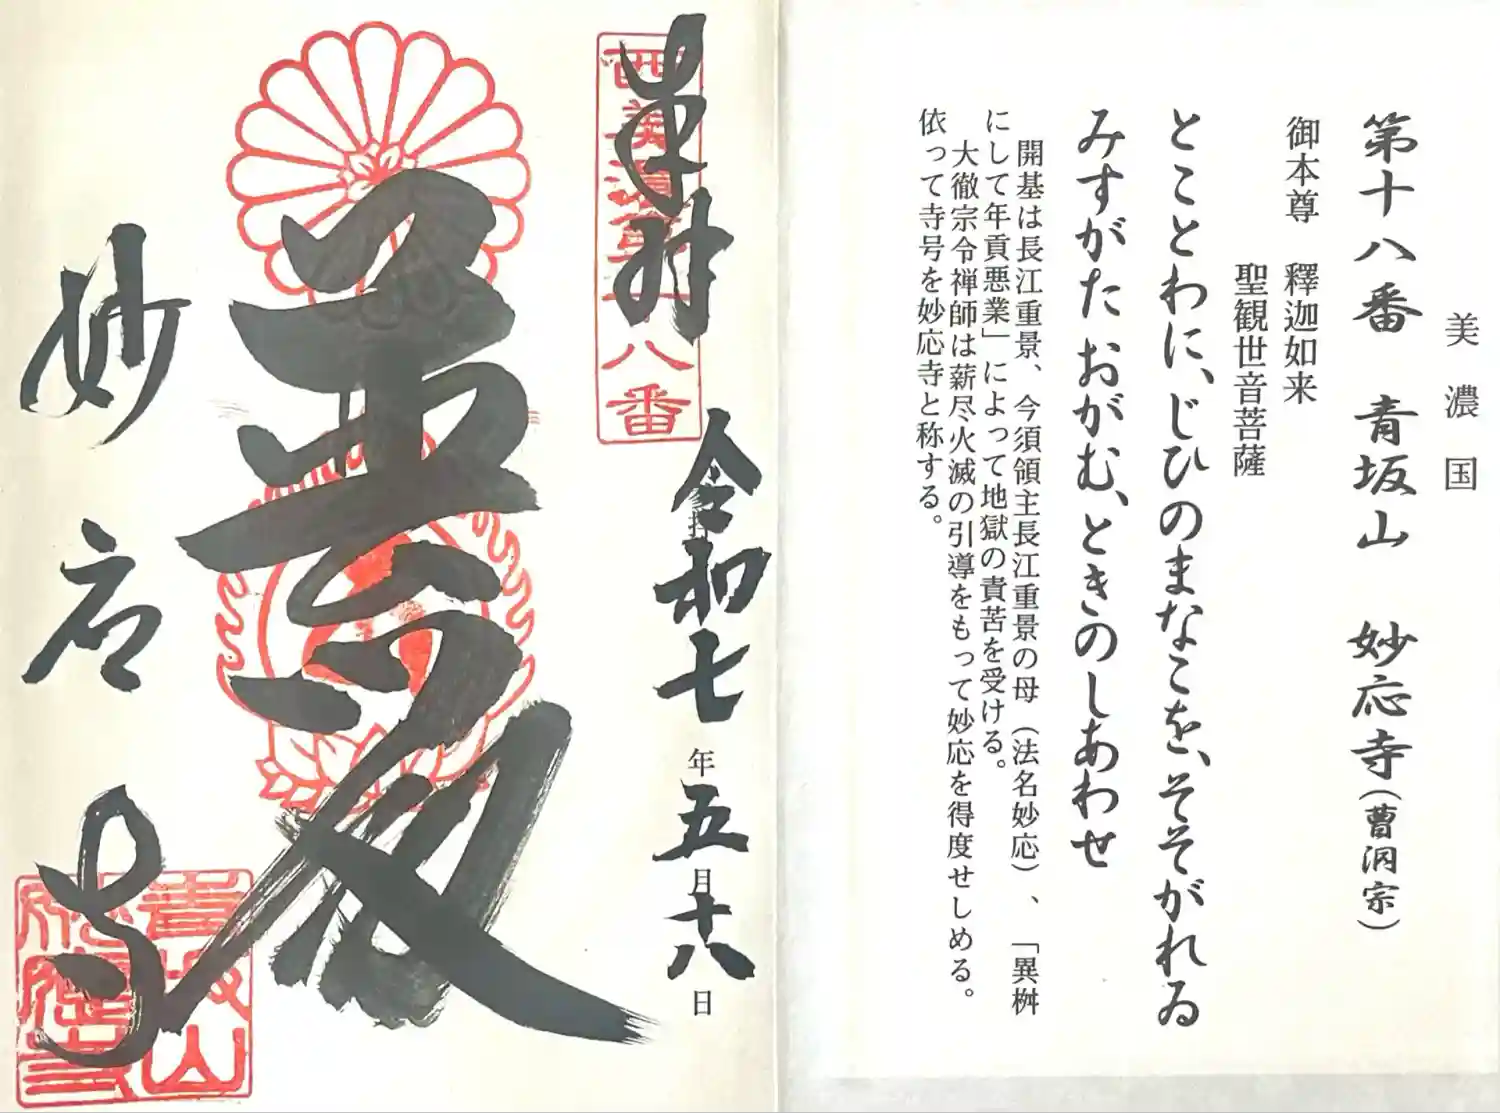 美濃国
第十八番 青坂山 妙応寺(曹洞宗)
御本尊 釋迦如来
聖観世音菩薩
とことわに、じひのまなこを、そそがれゐ
みすがたおがむ、ときのしあわせ
開基は長江重景、今須領主長江重景の母(法名妙応)、「異桝
にして年貢悪業」によって地獄の責苦を受ける。
大徹宗令禅師は薪尽火滅の引導をもって妙応を得度せしめる。
依って寺号を妙応寺と称する。
奉拝
西美濃第十八番
令和七年五月十八日
妙応寺
青坂山